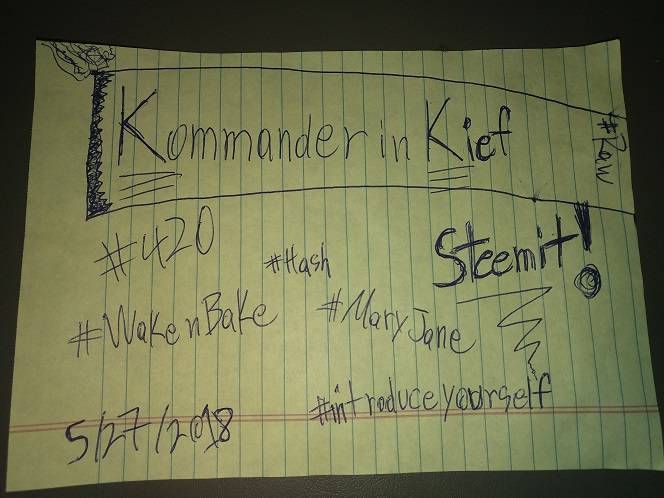 Kommander in Kief
#Raw
#420
#Hash
Steemit!
#WakenBake
#MaryJane
#introduceyourself
5/27/2018